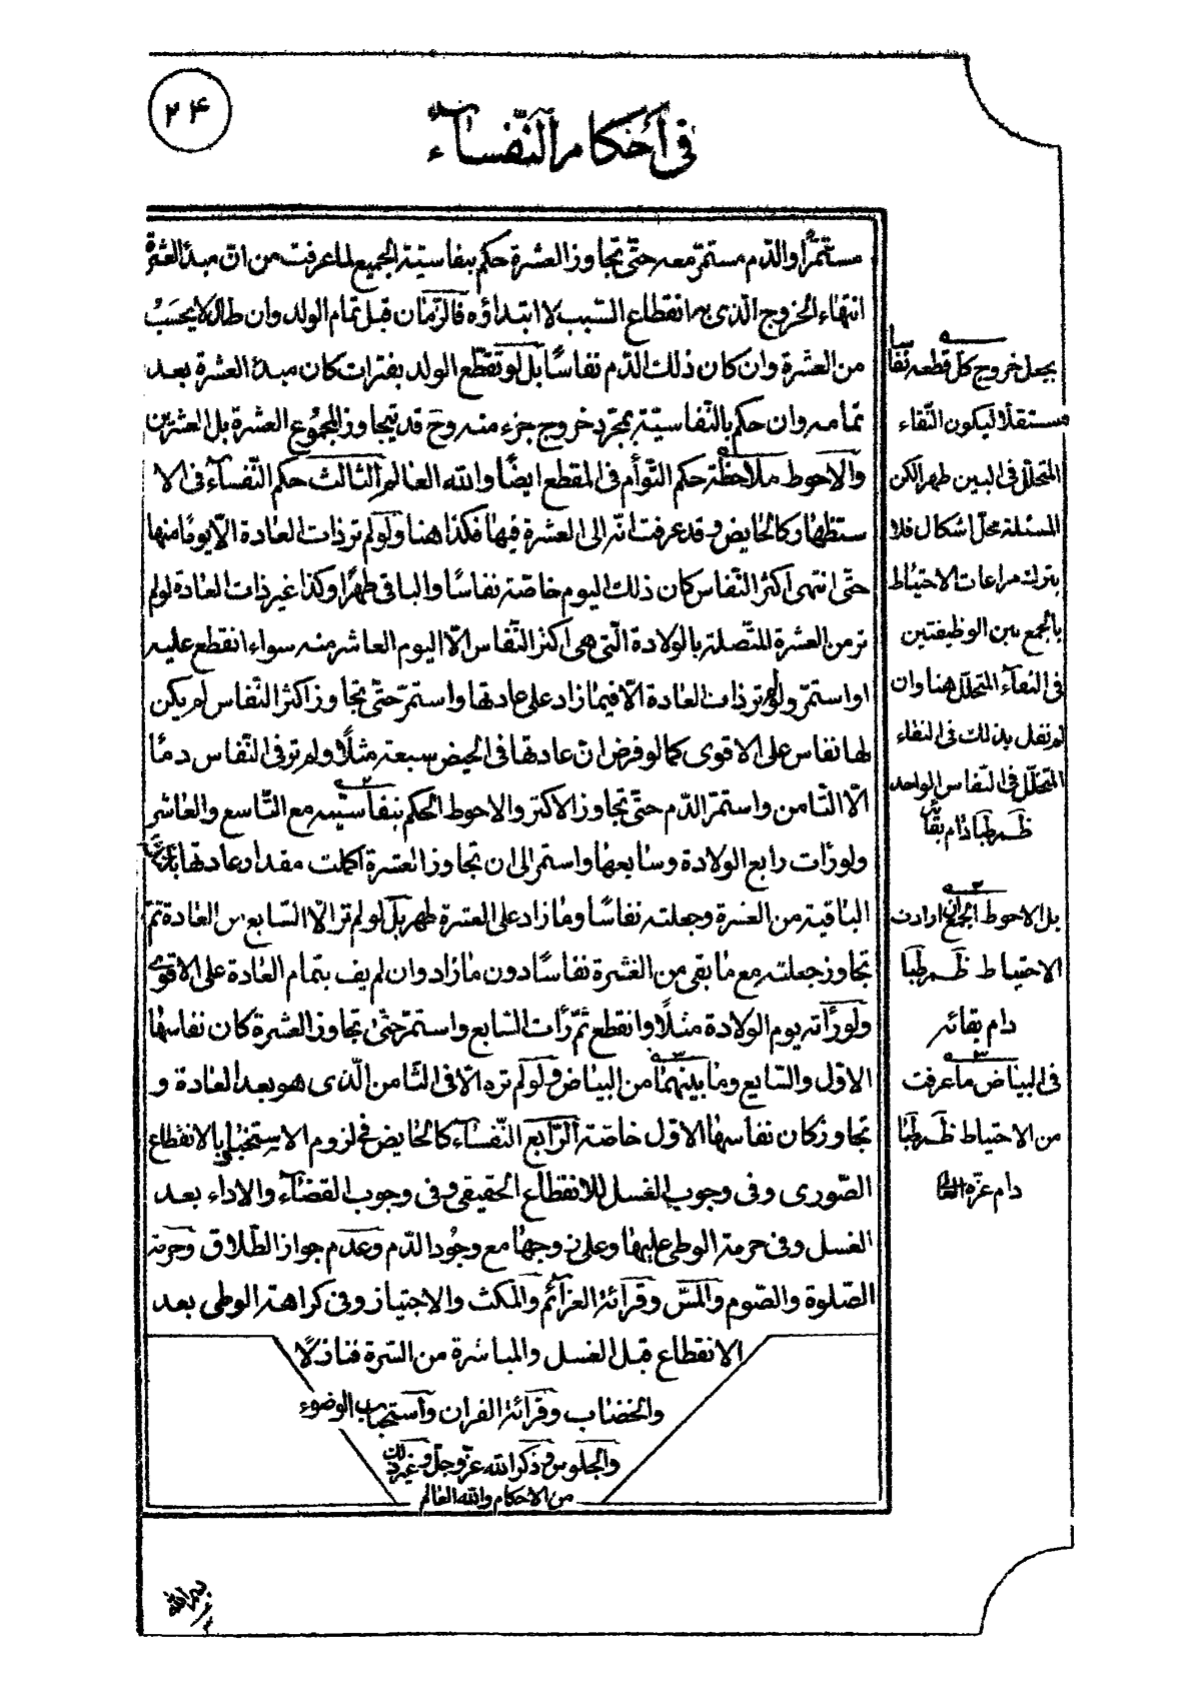 ۲۴
فى احكام النّفسآء
مستمرًّا والدّم مستمرّ معه حتّى تجاوز العشرة حكم بنفاسيّة الجميع لما عرفت من انّ مبدأ العشرة
انتهاء الخروج الّذى به انقطاع السّبب لا ابتداؤه فالزّمان قبل تمام الولد وان طال لا يحسب
من العشرة وان كان ذلك الدّم نفاسًا بل لو تقطّع الولد بفترات كان مبدأ العشرة بعد
تمامه وان حكم بالنّفاسيّة بمجرّد خروج جزء منه وح قد يتجاوز المجموع العشرة بل العشرين
والاحوط ملاحظة حكم التّوأم فى المقطع ايضًا والله العالم الثالث حكم النّفسآء فى الا
ستظهار كالحايض وقد عرفت انّه الى العشرة فيها فكذا هنا ولو لم تر ذات العادة الّا يومًا منها
حتّى انتهى اكثر النّفاس كان ذلك اليوم خاصّة نفاسًا والباقى طهرًا وكذا غير ذات العادة لو لم
تر من العشرة المتّصلة بالولادة الّتى هى اكثر النّفاس الّا اليوم العاشر منه سواء انقطع عليه
او استمرّ ولو لم تر ذات العادة الّا فيما زاد على عادتها واستمرّ حتّى تجاوز اكثر النّفاس لم يكن
لها نفاس على الاقوى كما لو فرض انّ عادتها فى الحيض سبعة مثلًا ولم تر فى النّفاس دمًا
الّا الثّامن واستمرّ الدّم حتّى تجاوز الاكثر والاحوط الحكم بنفاسيّته مع التّاسع والعاشر
ولو رات رابع الولادة وسابعها واستمر الى ان تجاوز العشرة اكملت مقدار عادتها
الباقية من العشرة وجعلته نفاسًا وما زاد على العشرة طهر بل لو لم تر الّا السّابع من العادة ثمّ
تجاوز جعلته مع ما بقى من العشرة نفاسًا دون ما زاد وان لم يف بتمام العادة على الاقوى
ولو رأته يوم الولادة مثلًا وانقطع ثمّ رأت السّابع واستمرّ حتّى تجاوز العشرة كان نفاسها
الاوّل والسّابع وما بينهما من البياض ولو لم تره الّا فى الثّامن الّذى هو بعد العادة و
تجاوز كان نفاسها الاول خاصّة الرّابع النّفسآء كالحايض فى لزوم الاستخبار بالانقطاع
الصّورى وفى وجوب الغسل للانقطاع الحقيقى وفى وجوب القضآء والاداء بعد
الغسل وفى حرمة الوطى عليها وعلى زوجها مع وجود الدّم وعدم جواز الطّلاق وحرمة
الصّلوة والصّوم والمسّ وقرائة العزآئم والمكث والاجتياز وفى كراهة الوطى بعد
الانقطاع قبل الغسل والمباشرة من السّرة فنازلًا
والخضاب وقرائة القران واستحباب الوضوء
والجلوس وذكر الله عزّ وجلّ وغير ذلك
من الاحكام والله العالم
يجعل خروج كلّ قطعة نفاسا
مستقلًا ليكون النّقاء
المتخلّل فى البين طهرا لكن
المسئلة محلّ اشكال فلا
يترك مراعات الاحتياط
بالجمع بين الوظيفتين
فى النقآء المتخلّل هنا وان
لم نقل بذلك فى النقاء
المتخلّل فى النّفاس الواحد
ظ م طبا دام بقاه
۲
بل الاحوط الجمع ان ارادت
الاحتياط ظ م طبا
دام بقائه
۳
فى البياض ما عرفت
من الاحتياط ظ م طبا
دام عزّه العالى